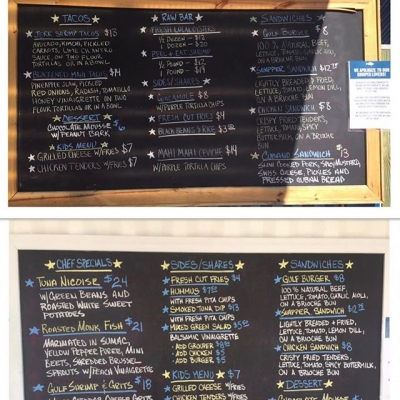 TACOS
JERK SHRIMP TACOS $13
AVOCADO, KIMCHI, PICKLED
CARROTS, LIME CILANTRO
SAUCE, ON TWO FLOUR
TORTILLAS, OR A BOWL
BLACKENED MAHI TACOS $14
PINEAPPLE SLAW, PICKLED
RED ONIONS, TOMATILLO
HONEY VINAIGRETTE ON TWO
FLOUR TORTILLAS OR IN A BOWL.
DESSERT
CHOCOLATE MOUSSE $6
W/ PEANUT BARK
KIDS MENU
GRILLED CHEESE W/FRIES $7
CHICKEN TENDERS W/FRIES $7
RAW BAR
FRESH LOCAL OYSTERS
1/2 DOZEN - $12
1 DOZEN - $20
PEEL & EAT SHRIMP
1/2 POUND - $12
1 POUND - $19
SIDES/SHARES
GUACAMOLE $8
W/ PURPLE TORTILLA CHIPS
FRESH CUT FRIES $4
BLACK BEANS & RICE
MAHI MAHI CEVICHE $14
W/PURPLE TORTILLA CHIPS
SANDWICHES
GULF BURGER $8
100% NATURAL BEEF,
LETTUCE, TOMATO, GARLIC AIOLI,
ON A BRIOCHE BUN
SNAPPER SANDWICH
LIGHTLY BREADED & FRIED,
LETTUCE, TOMATO, LEMON DILL,
ON A BRIOCHE BUN
CHICKEN SANDWICH $8
CRISPY FRIED TENDERS,
LETTUCE, TOMATO, SPICY
BUTTERMILK, ON A BRIOCHE
BUN
CUBANO SANDWICH $13
SLOW COOKED PORK, SPICY MUSTARD,
SWISS CHEESE, PICKLES AND
PRESSED CUBAN BREAD
WE APOLOGIZE TO OUR
CHEF SPECIALS
TUNA NICOISE $24
W/GREEN BEANS AND
ROASTED WHITE SWEET
POTATOES
ROASTED MONK FISH $21
MARINATED IN SUMAC,
YELLOW PEPPER PUREE, MINI
BEETS, SHREDDED BRUSSEL
SPROUTS W/FRENCH VINAIGRETTE
GULF SHRIMP & GRITS $18
SIDES/SHARES
FRESH CUT FRIES $4
HUMMUS
WITH FRESH PITA CHIPS
SMOKED TUNA DIP $13
WITH FRESH PITA CHIPS
MIXED GREEN SALAD
BALSAMIC VINAIGRETTE
ADD GROUPER
ADD CHICKEN $5
ADD BURGER $5
KIDS MENU $7
GRILLED CHEESE W/FRIES
CHICKEN TENDERS W/FRIES
SANDWICHES
GULF BURGER $8
100% NATURAL BEEF,
LETTUCE, TOMATO, GARLIC AIOLI,
ON A BRIOCHE BUN
SNAPPER SANDWICH
LIGHTLY BREADED & FRIED,
LETTUCE, TOMATO, LEMON DILL,
ON A BRIOCHE BUN
CHICKEN SANDWICH $8
CRISPY FRIED TENDERS,
LETTUCE, TOMATO, SPICY
BUTTERMILK, ON A BRIOCHE BUN
DESSERT
CHOCOLATE MOUSSE